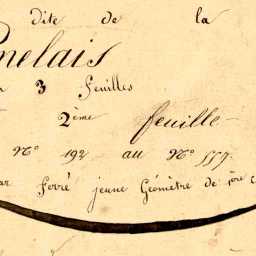 dite de la
nelais
3 feuilles
2ème feuille
N° 192 au N° 559.
ar Ferré jeune Géomètre de 1ère c